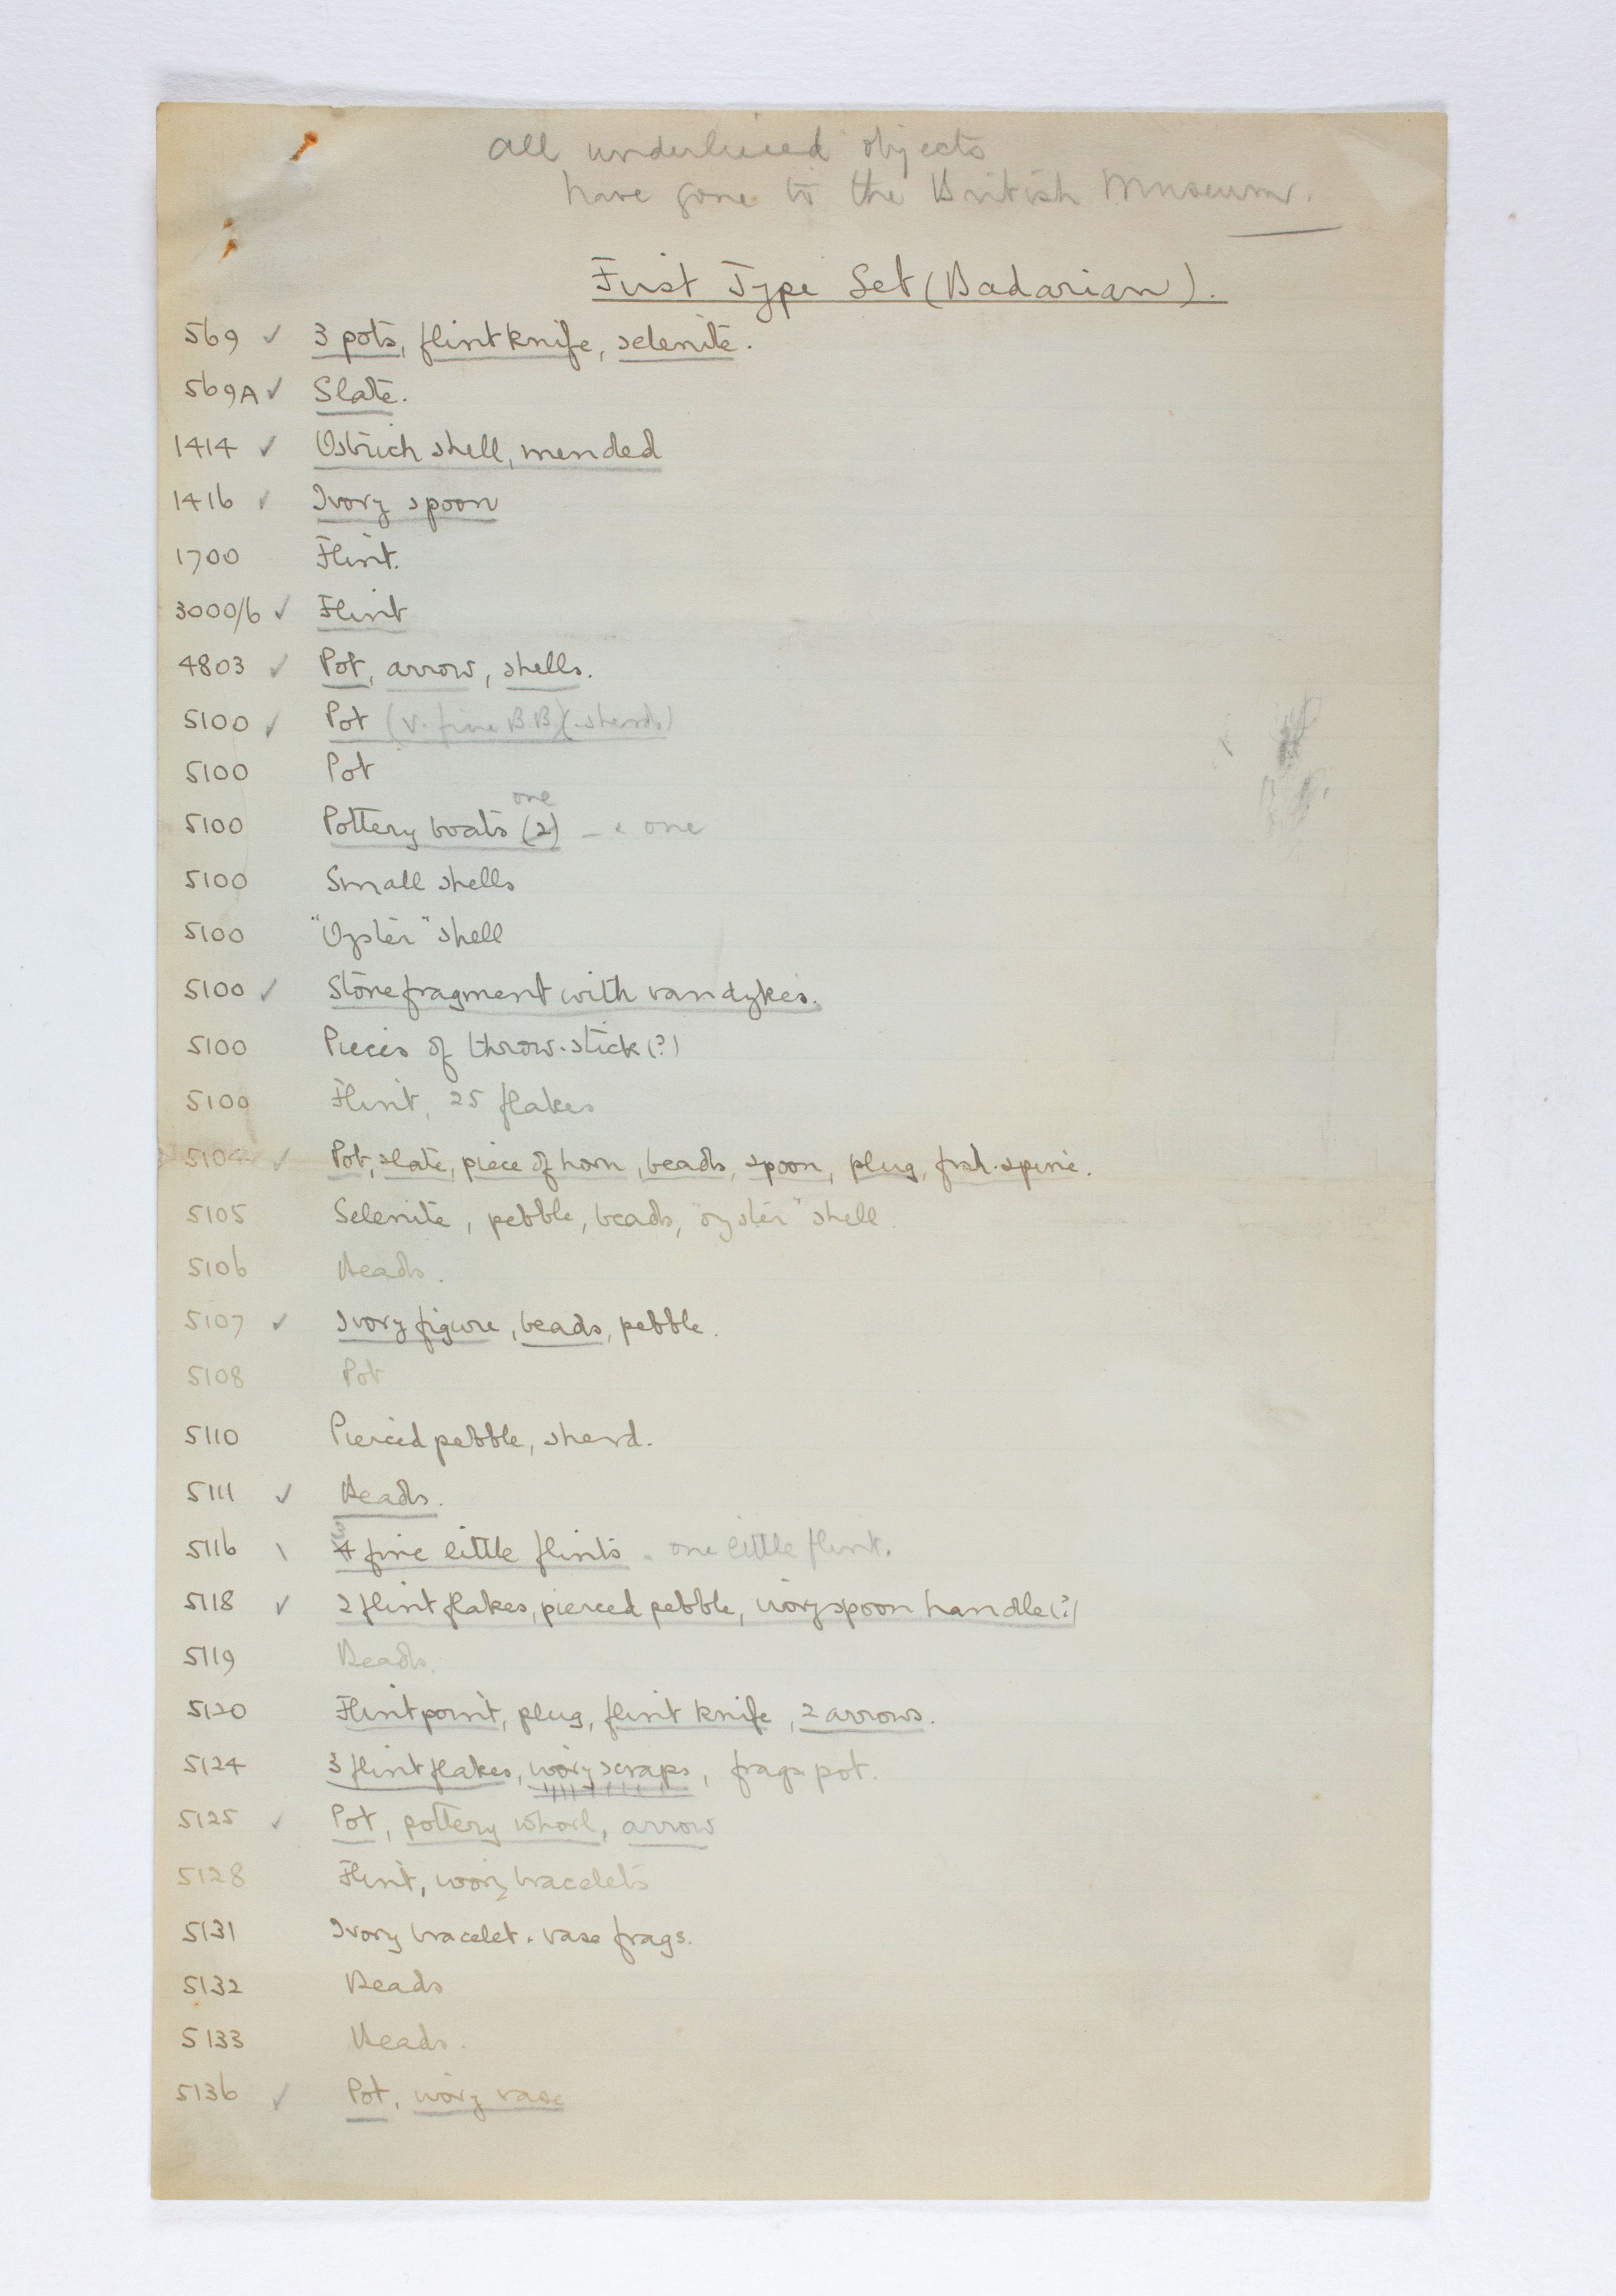 All underlined objects
have gone to the British Museum.
First Type Set (Badarian).
569 ✓ 3 pots, flint knife, selenite.
569A ✓ Slate.
1414 ✓ Ostrich shell, mended
1416 ✓ Ivory spoon
1700 Flint.
3000/6 ✓ Flint
4803 ✓ Pot, arrow, shells.
5100 ✓ Pot (v. fine BB) (sherds)
5100 Pot
one
5100 Pottery boats (2) – one
5100 Small shells
5100 "Oyster" shell
5100 ✓ Stone fragment with vandykes.
5100 Pieces of throw-stick (?)
5100 Flint, 25 flakes
5104 ✓ Pot, slate, piece of horn, beads, spoon, plug, fish-spine.
5105 Selenite, pebble, beads, "oyster" shell.
5106 Beads.
5107 ✓ Ivory figure, beads, pebble.
5108 Pot
5110 Pierced pebble, sherd.
5111 ✓ Beads.
5116 \ 4 fine little flints. one little flint.
5118 ✓ 2 flint flakes, pierced pebble, ivory spoon handle (?)
5119 Beads.
5120 Flint point, plug, flint knife, 2 arrows.
5124 3 flint flakes, ivory scraps, frags pot.
5125 ✓ Pot, pottery whorl, arrow
5128 Flint, ivory bracelets
5131 Ivory bracelet. vase frags.
5132 Beads
5133 Beads.
5136 ✓ Pot, ivory vase